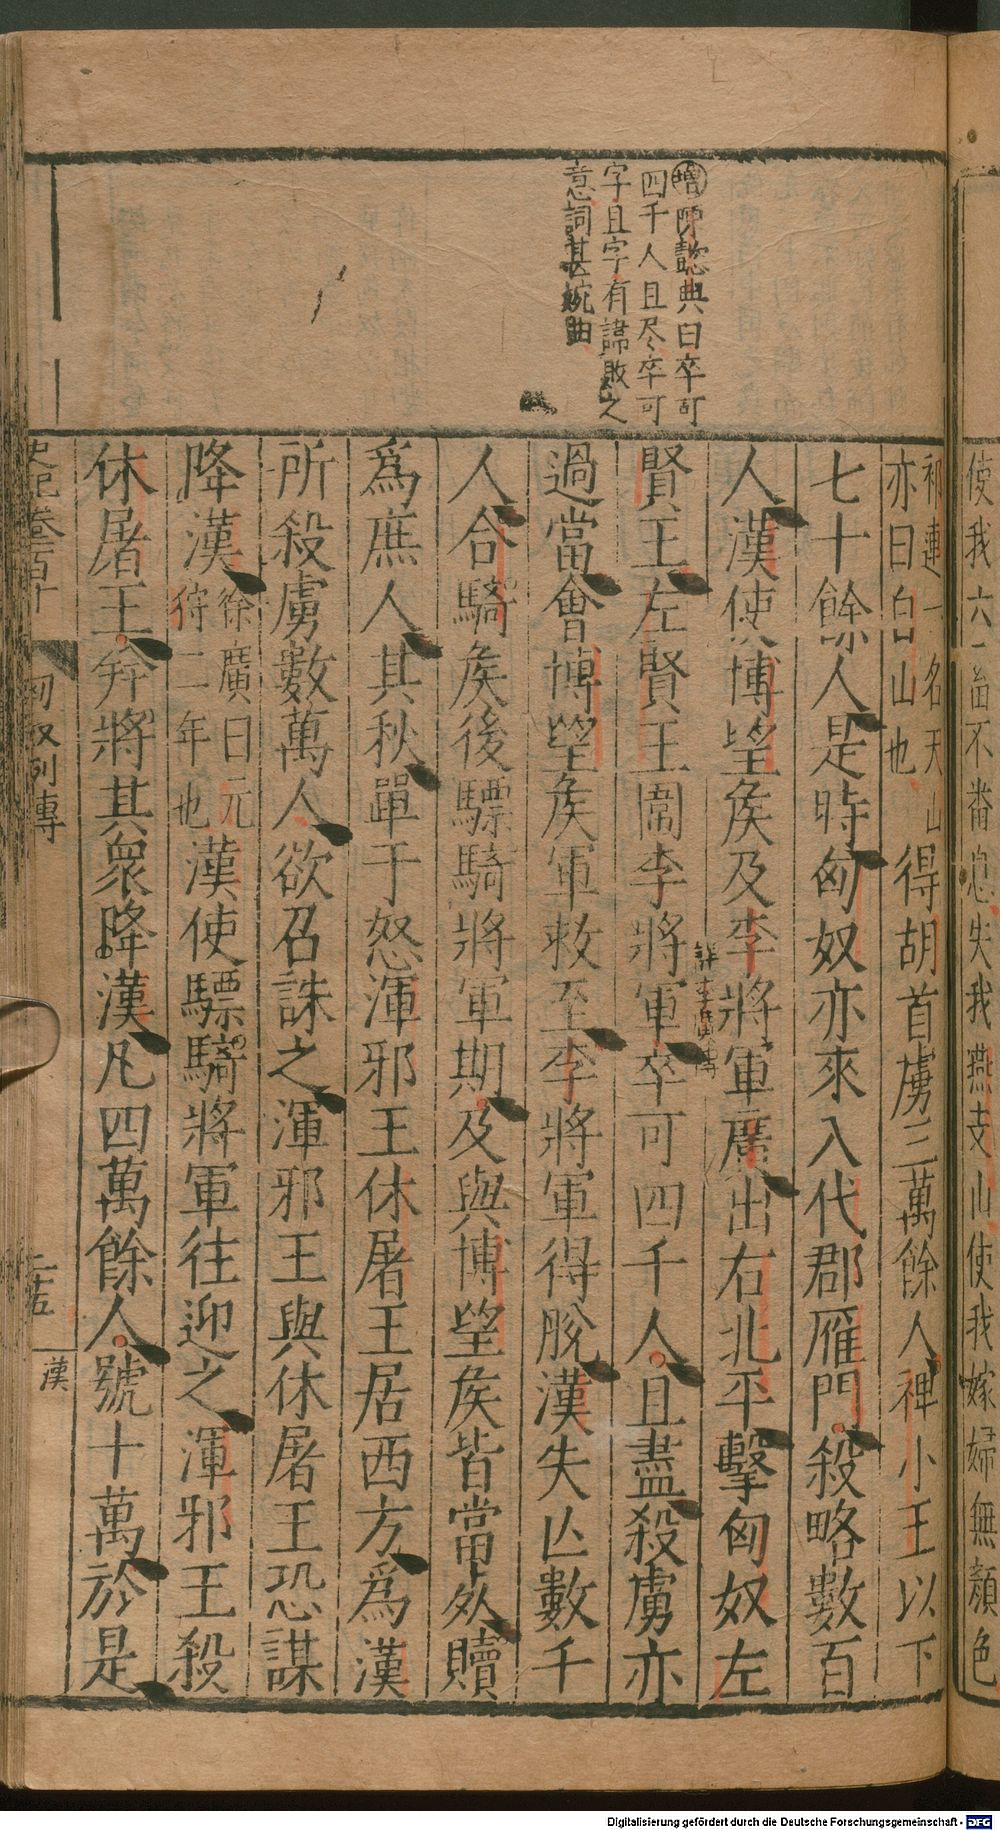 使我六畜不蕃息失我燕支山使我嫁婦無顏色
增陳懿典曰卒可
四千人且尽卒可
字且字有諱敗之
意詞甚婉曲
祁連一名天山
亦曰白山也
得胡首虜三萬餘人裨小王以下
七十餘人是時匈奴亦來入代郡雁門殺略數百
人漢使博望矦及李將軍廣出右北平擊匈奴左
賢王左賢王圍李將軍卒可四千人且盡殺虜亦
過當會博望矦軍救至李將軍得脫漢失亾數千
人合騎矦後驃騎將軍期及與博望矦皆當死贖
爲庶人其秋單于怒渾邪王休屠王居西方爲漢
所殺虜數萬人欲召誅之渾邪王與休屠王恐謀
降漢
徐廣曰元
狩二年也
漢使驃騎將軍往迎之渾邪王殺
休屠王并將其衆降漢凡四萬餘人號十萬於是
史記卷百十
匈奴列傳
漢
Digitalisierung gefördert durch die Deutsche Forschungsgemeinschaft - DFG